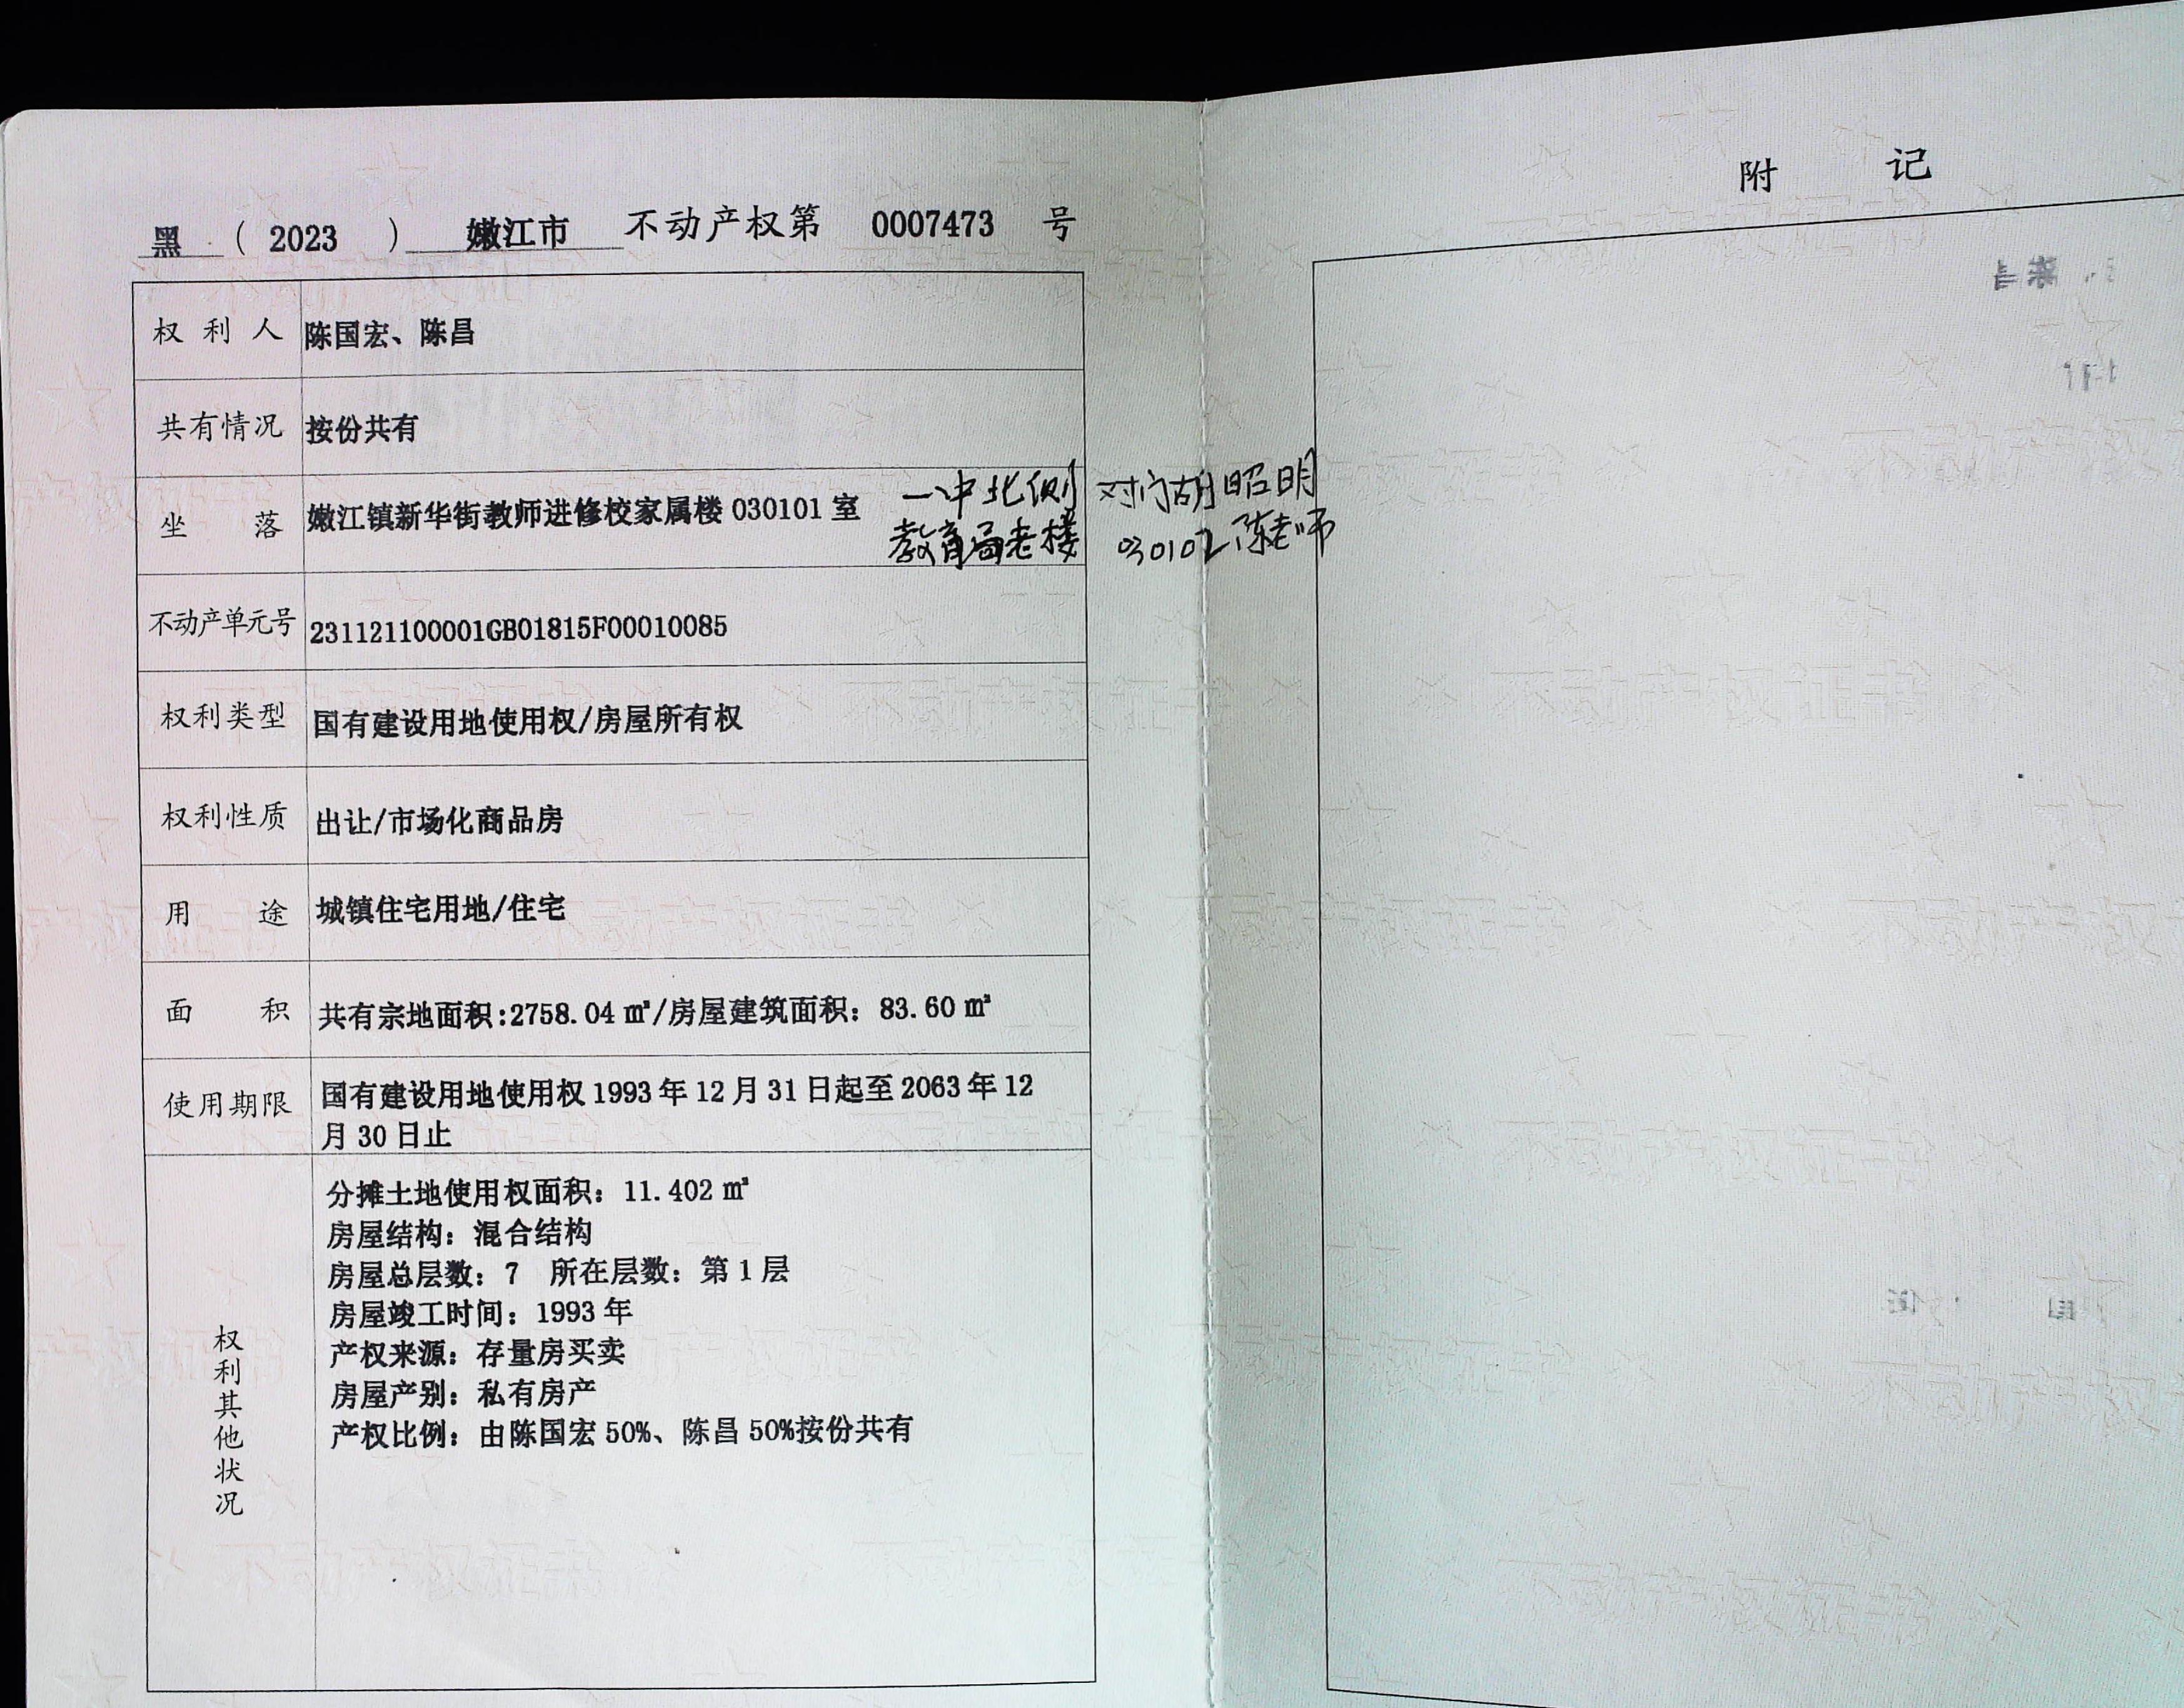 黑（2023）嫩江市 不动产权第 0007473 号
权利人 陈国宏、陈昌
共有情况 按份共有
坐落 嫩江镇新华街教师进修校家属楼 030101 室
一中北侧 对门胡昭明
教育局老楼 030102 陈老师
不动产单元号 231121100001GB01815F00010085
权利类型 国有建设用地使用权/房屋所有权
权利性质 出让/市场化商品房
用途 城镇住宅用地/住宅
面积 共有宗地面积:2758.04 ㎡/房屋建筑面积：83.60 ㎡
使用期限 国有建设用地使用权 1993 年 12 月 31 日起至 2063 年 12
月 30 日止
权利其他状况
分摊土地使用权面积：11.402 ㎡
房屋结构：混合结构
房屋总层数：7 所在层数：第 1 层
房屋竣工时间：1993 年
产权来源：存量房买卖
房屋产别：私有房产
产权比例：由陈国宏 50%、陈昌 50%按份共有
附记